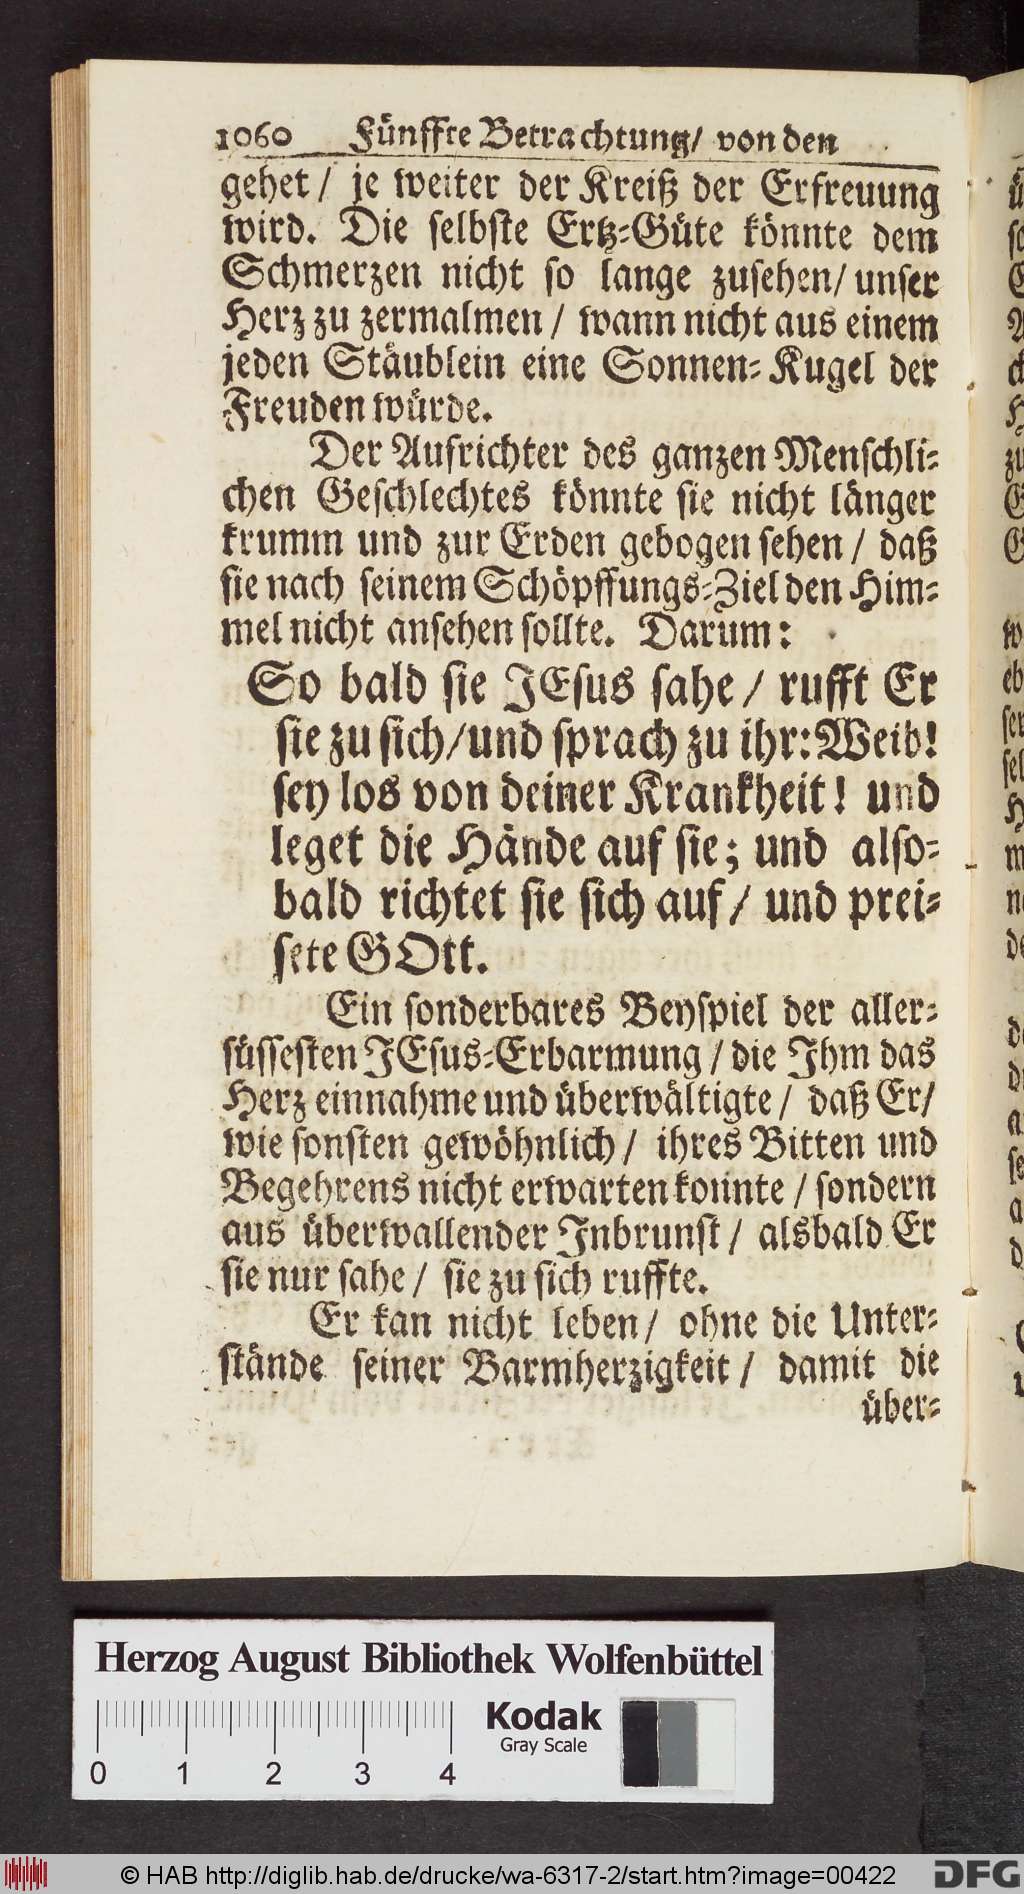 1060 Fünffte Betrachtung/ von den
gehet/ je weiter der Kreiß der Erfreuung
wird. Die selbste Ertz-Güte könnte dem
Schmerzen nicht so lange zusehen/ unser
Herz zu zermalmen/ wann nicht aus einem
jeden Stäublein eine Sonnen-Kugel der
Freuden würde.
Der Aufrichter des ganzen Menschli-
chen Geschlechtes könnte sie nicht länger
krumm und zur Erden gebogen sehen/ daß
sie nach seinem Schöpffungs-Ziel den Him-
mel nicht ansehen sollte. Darum:
So bald sie JEsus sahe/ rufft Er
sie zu sich/ und sprach zu ihr: Weib!
sey los von deiner Krankheit! und
leget die Hände auf sie; und also-
bald richtet sie sich auf/ und prei-
sete GOtt.
Ein sonderbares Beyspiel der aller-
süssesten JEsus-Erbarmung/ die Ihm das
Herz einnahme und überwältigte/ daß Er/
wie sonsten gewöhnlich/ ihres Bitten und
Begehrens nicht erwarten konnte/ sondern
aus überwallender Inbrunst/ alsbald Er
sie nur sahe/ sie zu sich ruffte.
Er kan nicht leben/ ohne die Unter-
stände seiner Barmherzigkeit/ damit die
über-
Herzog August Bibliothek Wolfenbüttel
Kodak
Gray Scale
0 1 2 3 4
© HAB http://diglib.hab.de/drucke/wa-6317-2/start.htm?image=00422
DFG